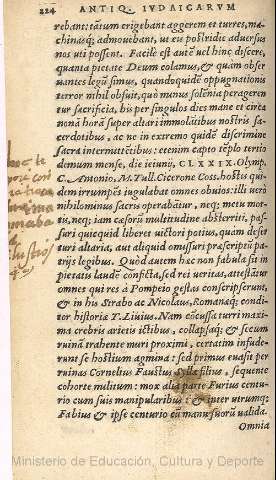 224 ANTIQ. IVDAICARVM
rebant: tātum erigebant aggerem et turres, ma
chinasq; admouebant, ut eu postridie aduersus
nos uti possent. Facile est aūt uel hinc discere,
quanta pietate Deum colamus, & quàm obser
uantes legū simus, quandoquidē oppugnationis
terror nihil obfuit, quo minus solēnia perageren
tur sacrificia, bis per singulos dies mane et circa
nonā horā super altari immolātibus nostris sa-
cerdotibus, ac ne in extremo quidē discrimine
sacra intermittētibus: etenim capto tēplo tertio
demum mense, die ieiunij, CLXXIX. Olymp.
C. Antonio, M. Tull. Cicerone Coss. hostes qui
dem irrumpēs iugulabat omnes obuios: illi uerò
nihilominus sacris operabātur, neq; metu mor-
tis, neq; iam cæsorū multitudine absterriti, pas-
suri quicquid liberet uictori potius, quàm deser
turi altaria, aut aliquid omissuri præscriptū pa-
trijs legibus. Quòd autem hæc non fabula sit in
pietatis laudē conficta, sed rei ueritas, attestātur
omnes qui res à Pompeio gestas conscripserunt,
& in his Strabo ac Nicolaus, Romanæq; condi
tor historiæ T. Liuius. Nam cōcussa turri maxi
ma crebris arietis ictibus, collapsaq; & secum
ruinā trahente muri proximi, certatim infude-
runt se hostium agmina: sed primus euasit per
ruinas Cornelius Faustus Syllæ filius, sequente
cohorte militum: mox alia parte Furius centu-
rio cum suis manipularibus: & inter utrumq;
Fabius & ipse centurio cū manu suorū ualida.
Omnia
Ministerio de Educación, Cultura y Deporte